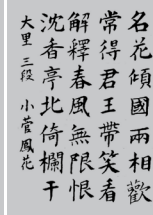 名花傾國兩相歡
常得君王帶笑看
解釋春風無限恨
沈香亭北倚欄干
大里 三段 小菅鳳花